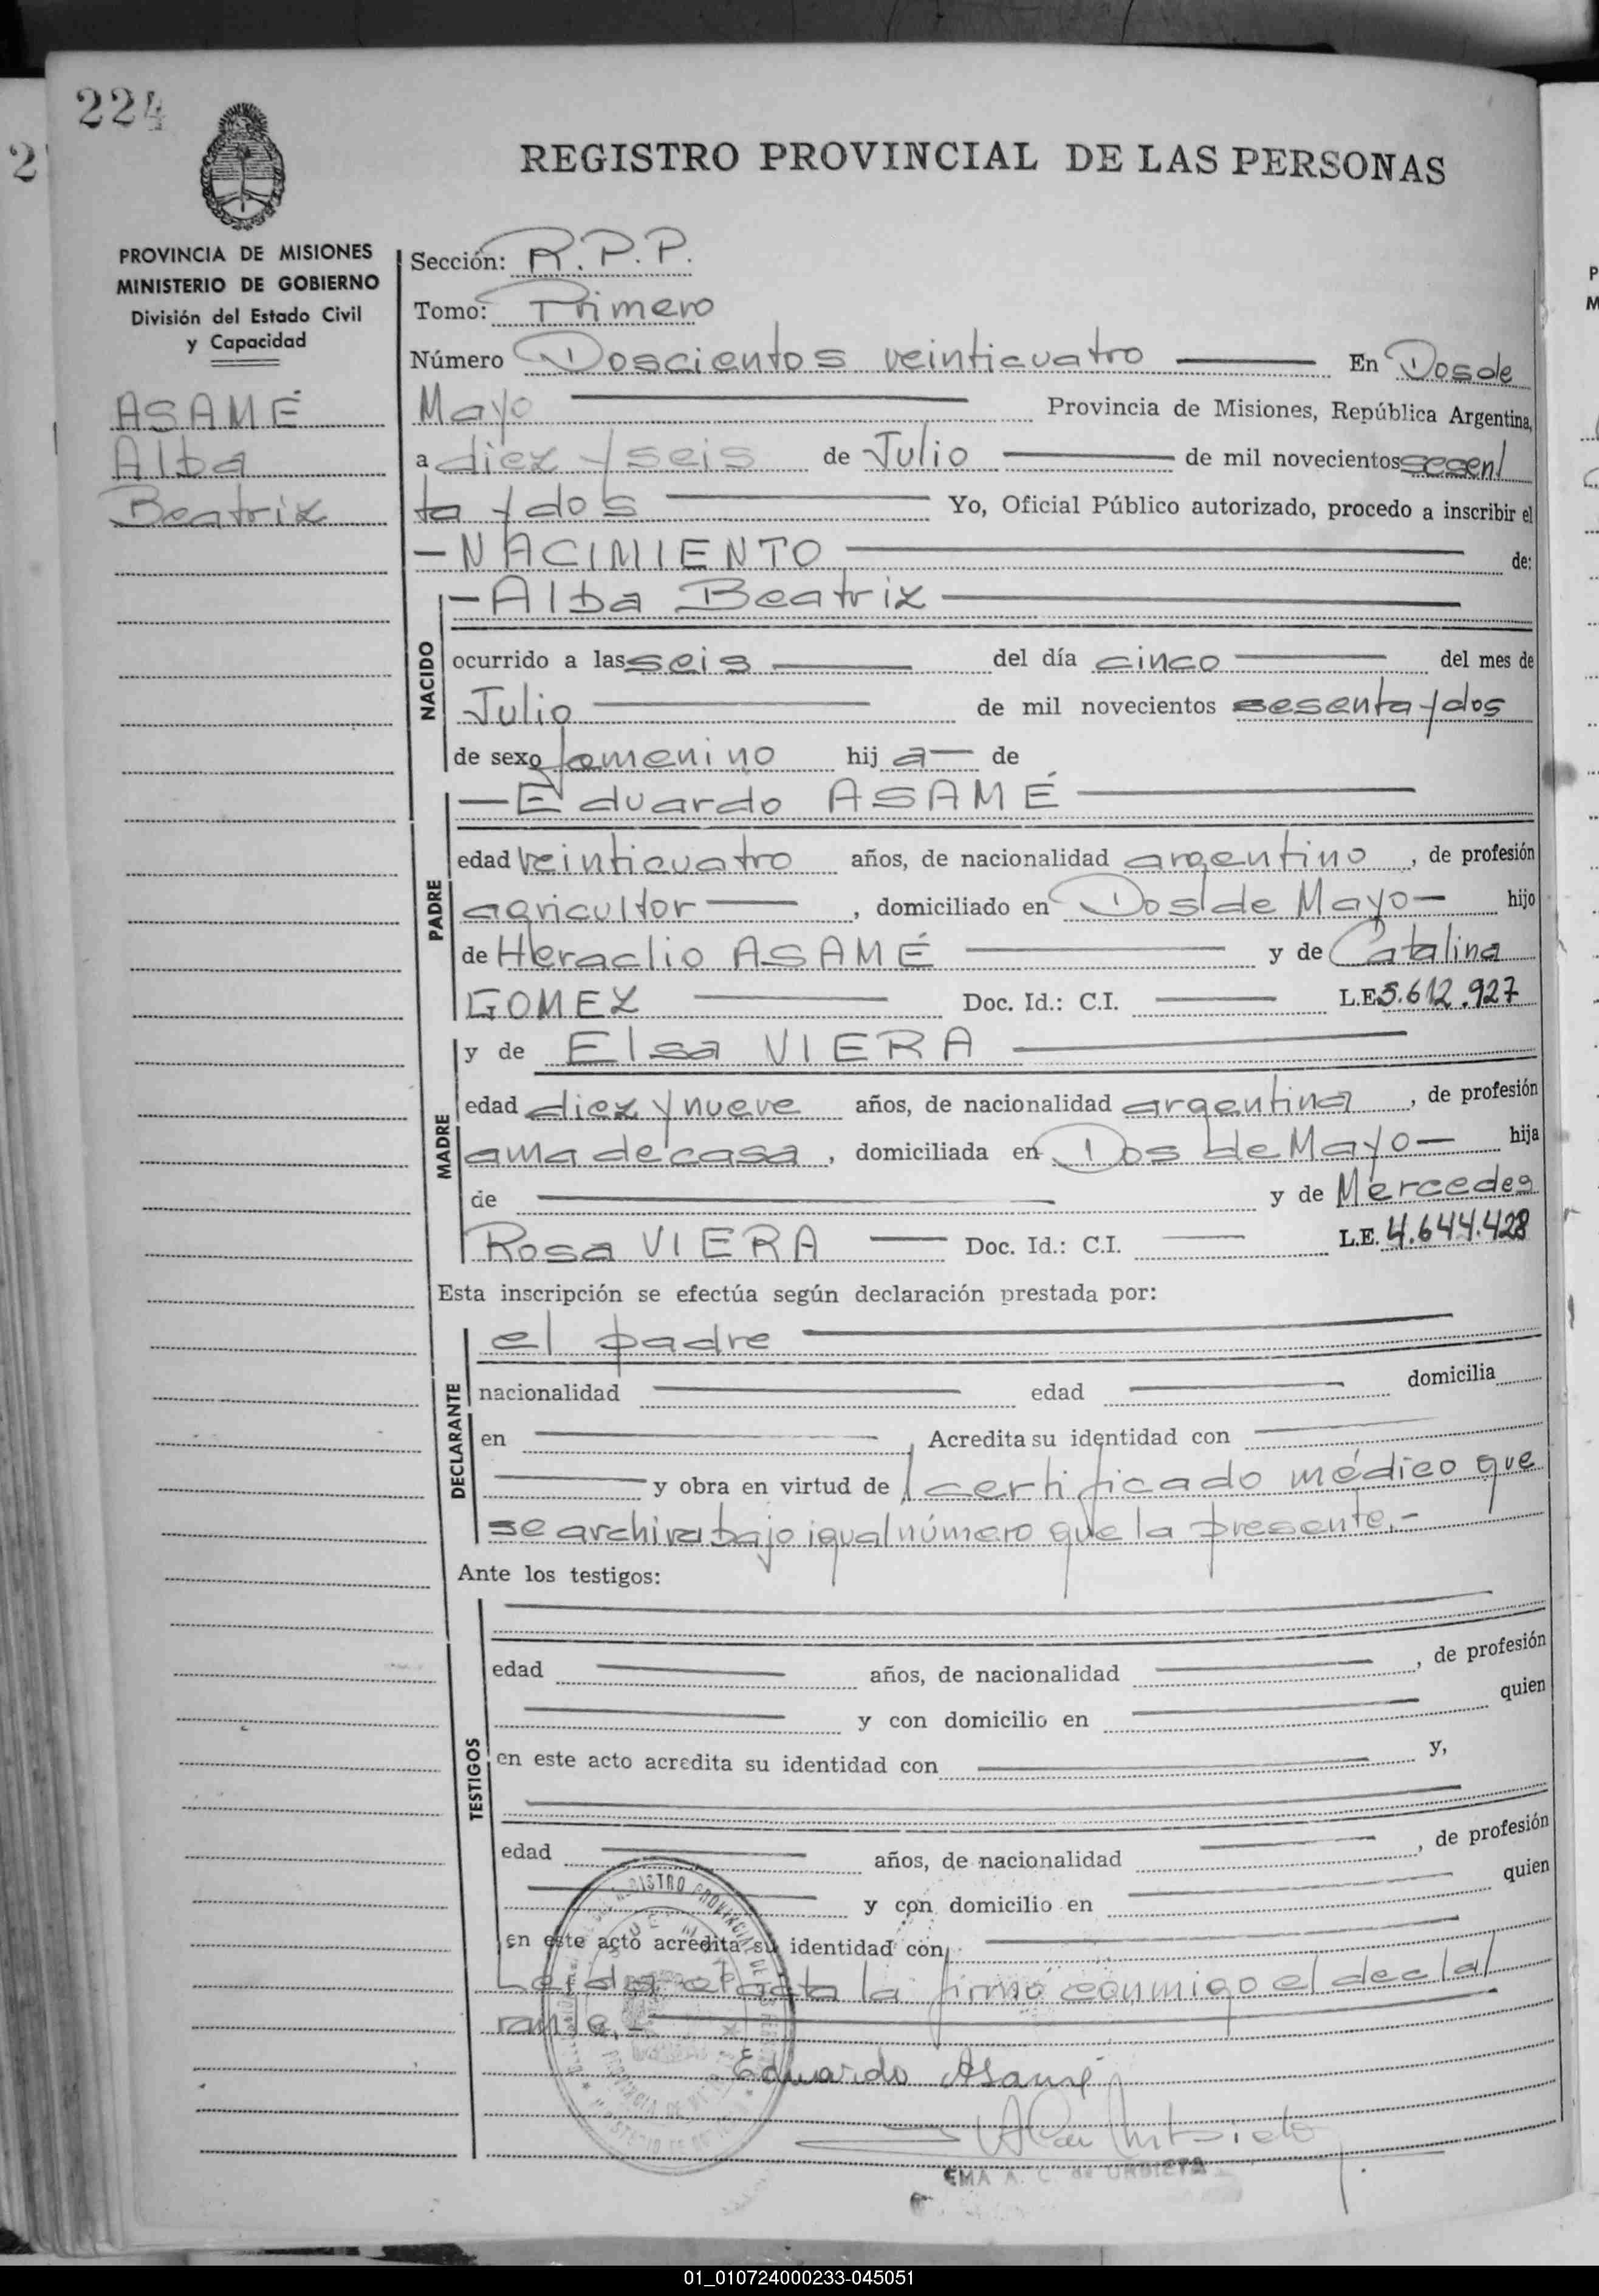 224
REGISTRO PROVINCIAL DE LAS PERSONAS
PROVINCIA DE MISIONES
MINISTERIO DE GOBIERNO
División del Estado Civil
y Capacidad
ASAMÉ
Alba
Beatriz
Sección: R.P.P.
Tomo: Primero
Número Doscientos veinticuatro En Dos de
Mayo Provincia de Misiones, República Argentina,
a diez y seis de Julio de mil novecientos sesen/
ta y dos Yo, Oficial Público autorizado, procedo a inscribir el
- NACIMIENTO de:
NACIDO
- Alba Beatriz
ocurrido a las seis del día cinco del mes de
Julio de mil novecientos sesenta y dos
de sexo femenino hij a de
PADRE
- Eduardo ASAMÉ
edad veinticuatro años, de nacionalidad argentino, de profesión
agricultor, domiciliado en Dos de Mayo hijo
de Heraclio ASAMÉ y de Catalina
GOMEZ Doc. Id.: C.I. L.E. 5.612.927
MADRE
y de Elsa VIERA
edad diez y nueve años, de nacionalidad argentina, de profesión
ama de casa, domiciliada en Dos de Mayo hija
de y de Mercedes
Rosa VIERA Doc. Id.: C.I. L.E. 4.644.428
Esta inscripción se efectúa según declaración prestada por:
DECLARANTE
el padre
nacionalidad edad domicilia
en Acredita su identidad con
y obra en virtud de / certificado médico que
se archiva bajo igual número que la presente.-
Ante los testigos:
TESTIGOS
edad años, de nacionalidad , de profesión
y con domicilio en quien
en este acto acredita su identidad con y,
edad años, de nacionalidad , de profesión
y con domicilio en quien
en este acto acredita su identidad con
Leída el acta la firmó conmigo el decla/
rante.-
Eduardo Asamé
EMA A. C. de URBIETA
01_010724000233-045051